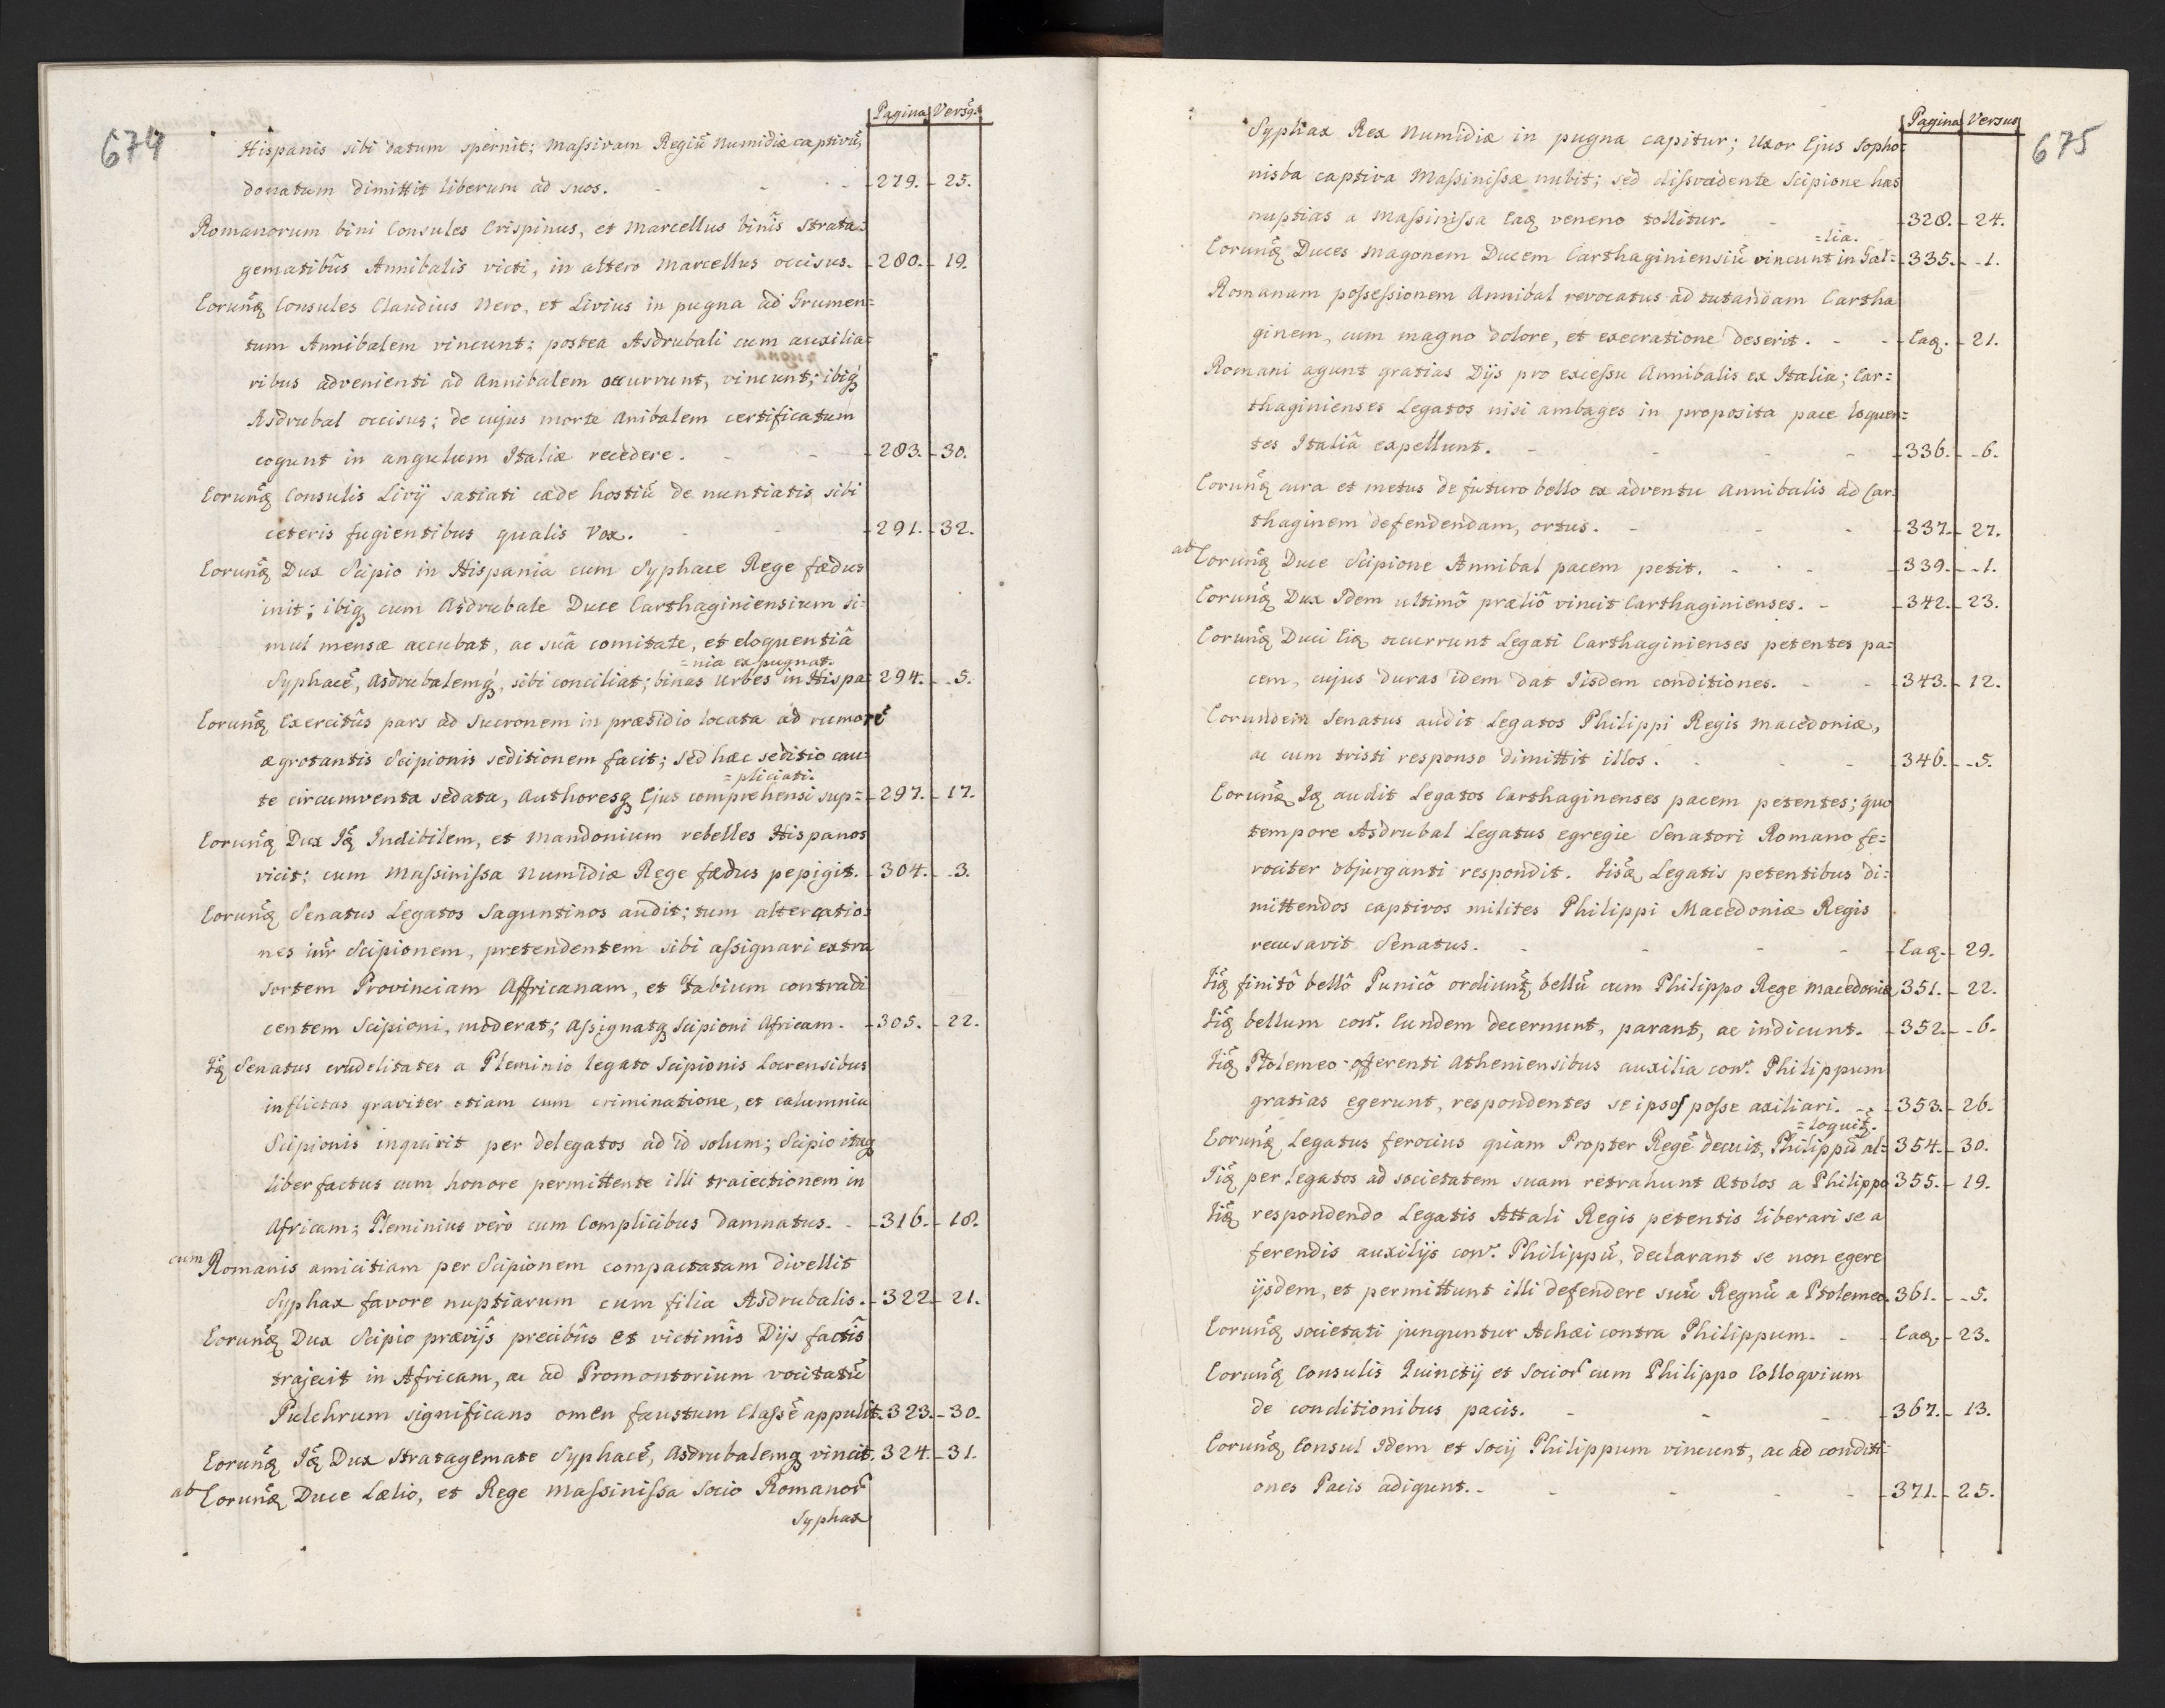 674
Pagina Versꝯ
Hispanis sibi datum spernit; Massivam Regiũ Numidiæ captivũ,
donatum dimittit liberum ad suos. - - - 279. - 25.
Romanorum bini Consules Crispinus, et Marcellus binîs strata=
gematibûs Annibalis victi, in altero Marcellus occisus. - 280. - 19.
Eorunꝗ̃ Consules Claudius Nero, et Livius in pugna ad Grumen=
tum Annibalem vincunt; postea Asdrubali cum auxilia=
pugna
ribus advenienti ad Annibalem occurrunt, vincunt; ibiꝗ́
Asdrubal occisus; de cujus morte Anibalem certificatum
cogunt in angulum Italiæ recedere. - - - 283. - 30.
Eorunꝗ̃ Consulis Livij satiati cæde hostiũ de nuntiatis sibi
ceteris fugientibus qualis Vox. - - - 291. - 32.
Eorunꝗ̃ Dux Scipio in Hispania cum Syphace Rege fædus
init; ibiꝗ cum Asdrubale Duce Carthaginiensium si=
mul mensæ accubat, ac suâ comitate, et eloquentiâ
=nia expugnat.
Syphacẽ, Asdrubalemꝗ́, sibi conciliat; binas Urbes in Hispa= 294. - 5.
Eorunꝗ̃ Exercitûs pars ad Sucronem in præsidio locata ad rumorẽ
ægrotantis Scipionis seditionem facit; sed hæc seditio cau=
=pliciati.
te circumventa sedata, Authoresꝗ Ejus comprehensi sup= - 297. - 17.
Eorunꝗ̃ Dux Iꝗ̃ Indibilem, et Mandonium rebelles Hispanos
vicit; cum Massinissa Numidiæ Rege fædus pepigit. - 304. - 3.
Eorunꝗ̃ Senatus Legatos Saguntinos audit; tum altercatio=
nes inr̃ Scipionem, pretendentem sibi assignari extra
sortem Provinciam Affricanam, et Fabium contradi
centem Scipioni, moderat; Assignatꝗ Scipioni Africam. - 305. - 22.
Iꝗ̃ Senatus crudelitates a Pleminio legato Scipionis Locrensibus
inflictas graviter etiam cum criminatione, et calumnia
Scipionis inquirit per delegatos ad id solum; Scipio itaꝗ
liber factus cum honore permittente illi traiectionem in
Africam; Pleminius verò cum Complicibus damnatus. - 316. - 18.
cum Romanis amicitiam per Scipionem compactatam divellit
Syphax favore nuptiarum cum filia Asdrubalis. - 322 - 21.
Eorunꝗ̃ Dux Scipio prævijs̑ precibûs et victimîs Dijs factîs
trajecit in Africam, ac ad Promontorium vocitatũ
Pulchrum significans omen faustum Classẽ appulit. 323. - 30.
Eorunꝗ̃ Iꝗ̃ Dux Stratagemate Syphacẽ, Asdrubalemꝗ vincit. 324. - 31.
ab Eorunꝗ̃ Duce Lælio, et Rege Massinissa Socio Romanor̃
Syphax
675
Pagina Versus
Syphax Rex Numidiæ in pugna capitur; Uxor Ejus Sopho=
nisba captiva Massinissæ nubit; sed dissvadente Scipione has
nuptias a Massinissa Eaꝗ veneno tollitur. - - 328. - 24.
=lia.
Eorunꝗ̃ Duces Magonem Ducem Carthaginiensiũ vincunt in Gal= - 335. - 1.
Romanam possessionem Annibal revocatus ad tutandam Cartha
ginem, cum magno dolore, et execratione deserit. - - Eaꝗ. - 21.
Romani agunt gratias Dijs pro excessu Annibalis ex Italia; Car=
thaginienses Legatos nisi ambages in proposita pace loquen=
tes Italiâ expellunt. - - - - 336. - 6.
Eorunꝗ̃ cura et metus de futuro bello ex adventu Annibalis ad Car=
thaginem defendendam, ortus. - - - 337. - 27.
ab Eorunꝗ̃ Duce Scipione Annibal pacem petit. - - - 339. - 1.
Eorunꝗ̃ Dux Idem ultimô præliô vincit Carthaginienses. - - 342. - 23.
Eorunꝗ̃ Duci Eiꝗ occurrunt Legati Carthaginienses petentes pa=
cem, cujus duras idem dat Iisdem conditiones. - - 343. - 12.
Eorundem Senatus audit Legatos Philippi Regis Macedoniæ,
ac cum tristi responso dimittit illos. - - - 346. - 5.
Eorunꝗ̃ Iꝗ audit Legatos Carthaginenses pacem petentes; quo
tempore Asdrubal Legatus egregie Senatori Romano fe=
rociter objurganti respondit. Iisꝗ̃ Legatis petentibus di=
mittendos captivos milites Philippi Macedoniæ Regis
recusavit Senatus. - - - - Eaꝗ. - 29.
Iiꝗ̃ finitô bellô Punicô ordiunt̃, bellũ cum Philippo Rege Macedoniæ 351. - 22.
Iiꝗ̃ bellum conr̃. Eundem decernunt, parant, ac indicunt. - 352. - 6.
Iiꝗ̃ Ptolemeo offerenti Atheniensibus auxilia conr̃. Philippum
gratias egerunt, respondentes se ipsos posse axiliari. - - 353. - 26.
=loquit̃.
Eorunꝗ̃ Legatus ferocius quam Propter Regẽ decuit, Philippũ al= 354. - 30.
Iiꝗ̃ per legatos ad societatem suam retrahunt Ætolos a Philippo 355. - 19.
Iiꝗ̃ respondendo Legatis Attali Regis petentis liberari se a
ferendis auxilijs conr̃. Philippũ, declarant se non egere
ijsdem, et permittunt illi defendere suũ Regnũ a Ptolemeo. 361. - 5.
Eorunꝗ̃ societati junguntur Achæi contra Philippum. - - Eaꝗ. - 23.
Eorunꝗ̃ Consulis Quinctij et Socior̃ cum Philippo Colloqvium
de conditionibus pacis. - - - 367. - 13.
Eorunꝗ̃ Consul Idem et Socij Philippum vincunt, ac ad conditi=
ones Pacis adigunt. - - - - 371. - 25.